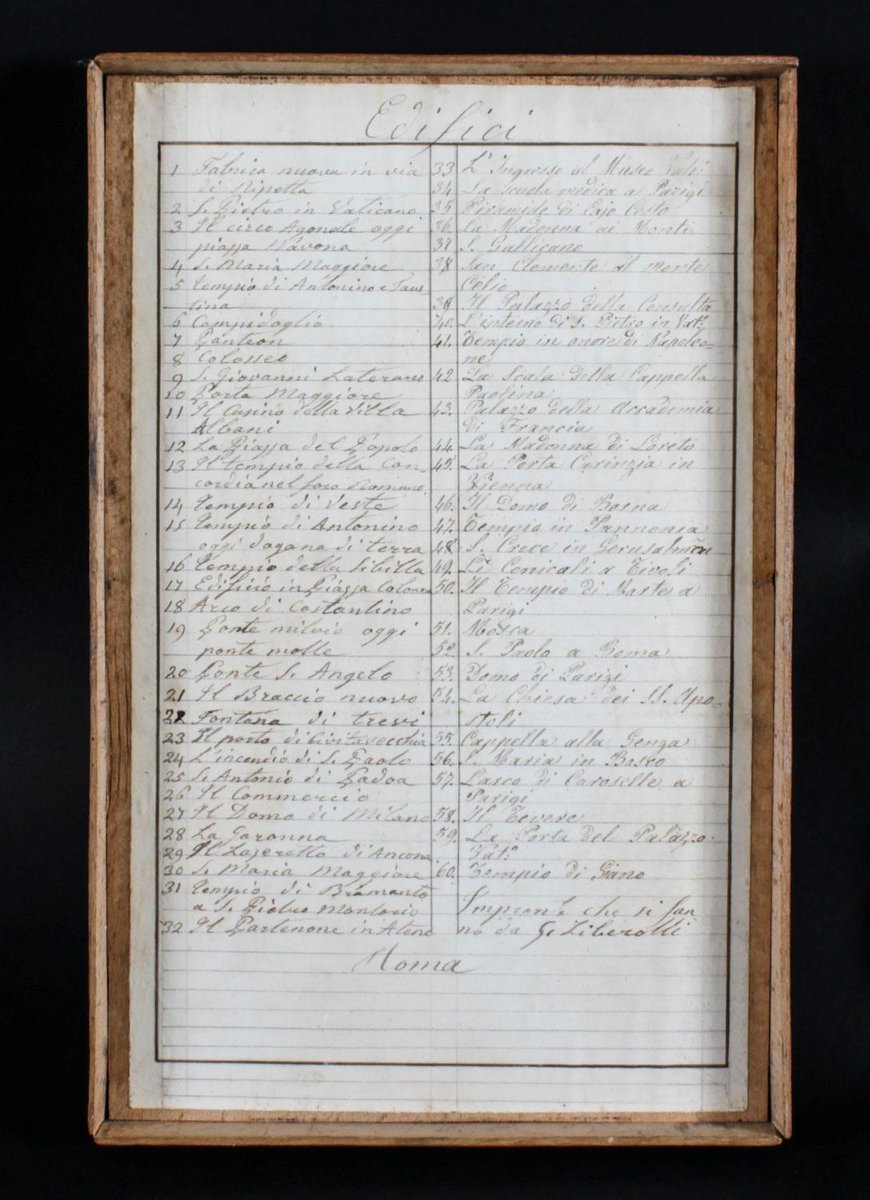 Edifici
1 Fabrica nuova in via
di Ripetta
2 S. Pietro in Vaticano
3 Il circo Agonale oggi
piazza Navona
4 S. Maria Maggiore
5 Tempio di Antonino e Faus-
tina
6 Campidoglio
7 Panteon
8 Colosseo
9 S. Giovanni Laterano
10 Porta Maggiore
11 Il Casino della Villa
Albani
12 La Piazza del Popolo
13 Il tempio della Con-
cordia nel foro Romano
14 Tempio di Veste
15 Tempio di Antonino
oggi dogana di terra
16 Tempio della Sibilla
17 Edificio in Piazza Colonna
18 Arco di Costantino
19 Ponte milvio oggi
ponte molle
20 Ponte S. Angelo
21 Il Braccio nuovo
22 Fontana di trevi
23 Il porto di Civitavecchia
24 L'incendio di S. Paolo
25 S. Antonio di Padoa
26 Il Commercio
27 Il Domo di Milano
28 La Garonna
29 Il Lazeretto di Ancona
30 S. Maria Maggiore
31 Tempio di Bramante
a S. Pietro Montorio
32 Il Partenone in Atene
33 L'Ingresso al Museo Vat:
34 La Scuola medica a Parigi
35 Piramide di Cajo Cesto
36 La Madonna ai Monti
37 S. Gallicano
38 San Clemente al monte
Celio
39 Il Palazzo della Consulta
40. L'interno di S. Pietro in Vat:
41. Tempio in onore di Napoleo-
ne
42 La Scala della Cappella
Paolina
43. Palazzo della Accademia
di Francia
44. La Madonna di Loreto
45. La Porta Carinzia in
Vienna
46. Il Domo di Berna
47. Tempio in Pannonia
48. S. Croce in Gerusalem
49. Li Conicali a Tivoli
50. Il Tempio di Marte a
Parigi
51. Mosca
52. S. Paolo a Roma
53. Domo di Parigi
54. La Chiesa dei SS. Apo-
stoli
55. Cappella alla Genga
56. S. Maria in Bosco
57. Larco di Caroselle a
Parigi
58. Il Tevere
59. La Porta del Palazzo
Vat:
60. Tempio di Giano
Impronte che si fan
no da G. Liberotti
Roma